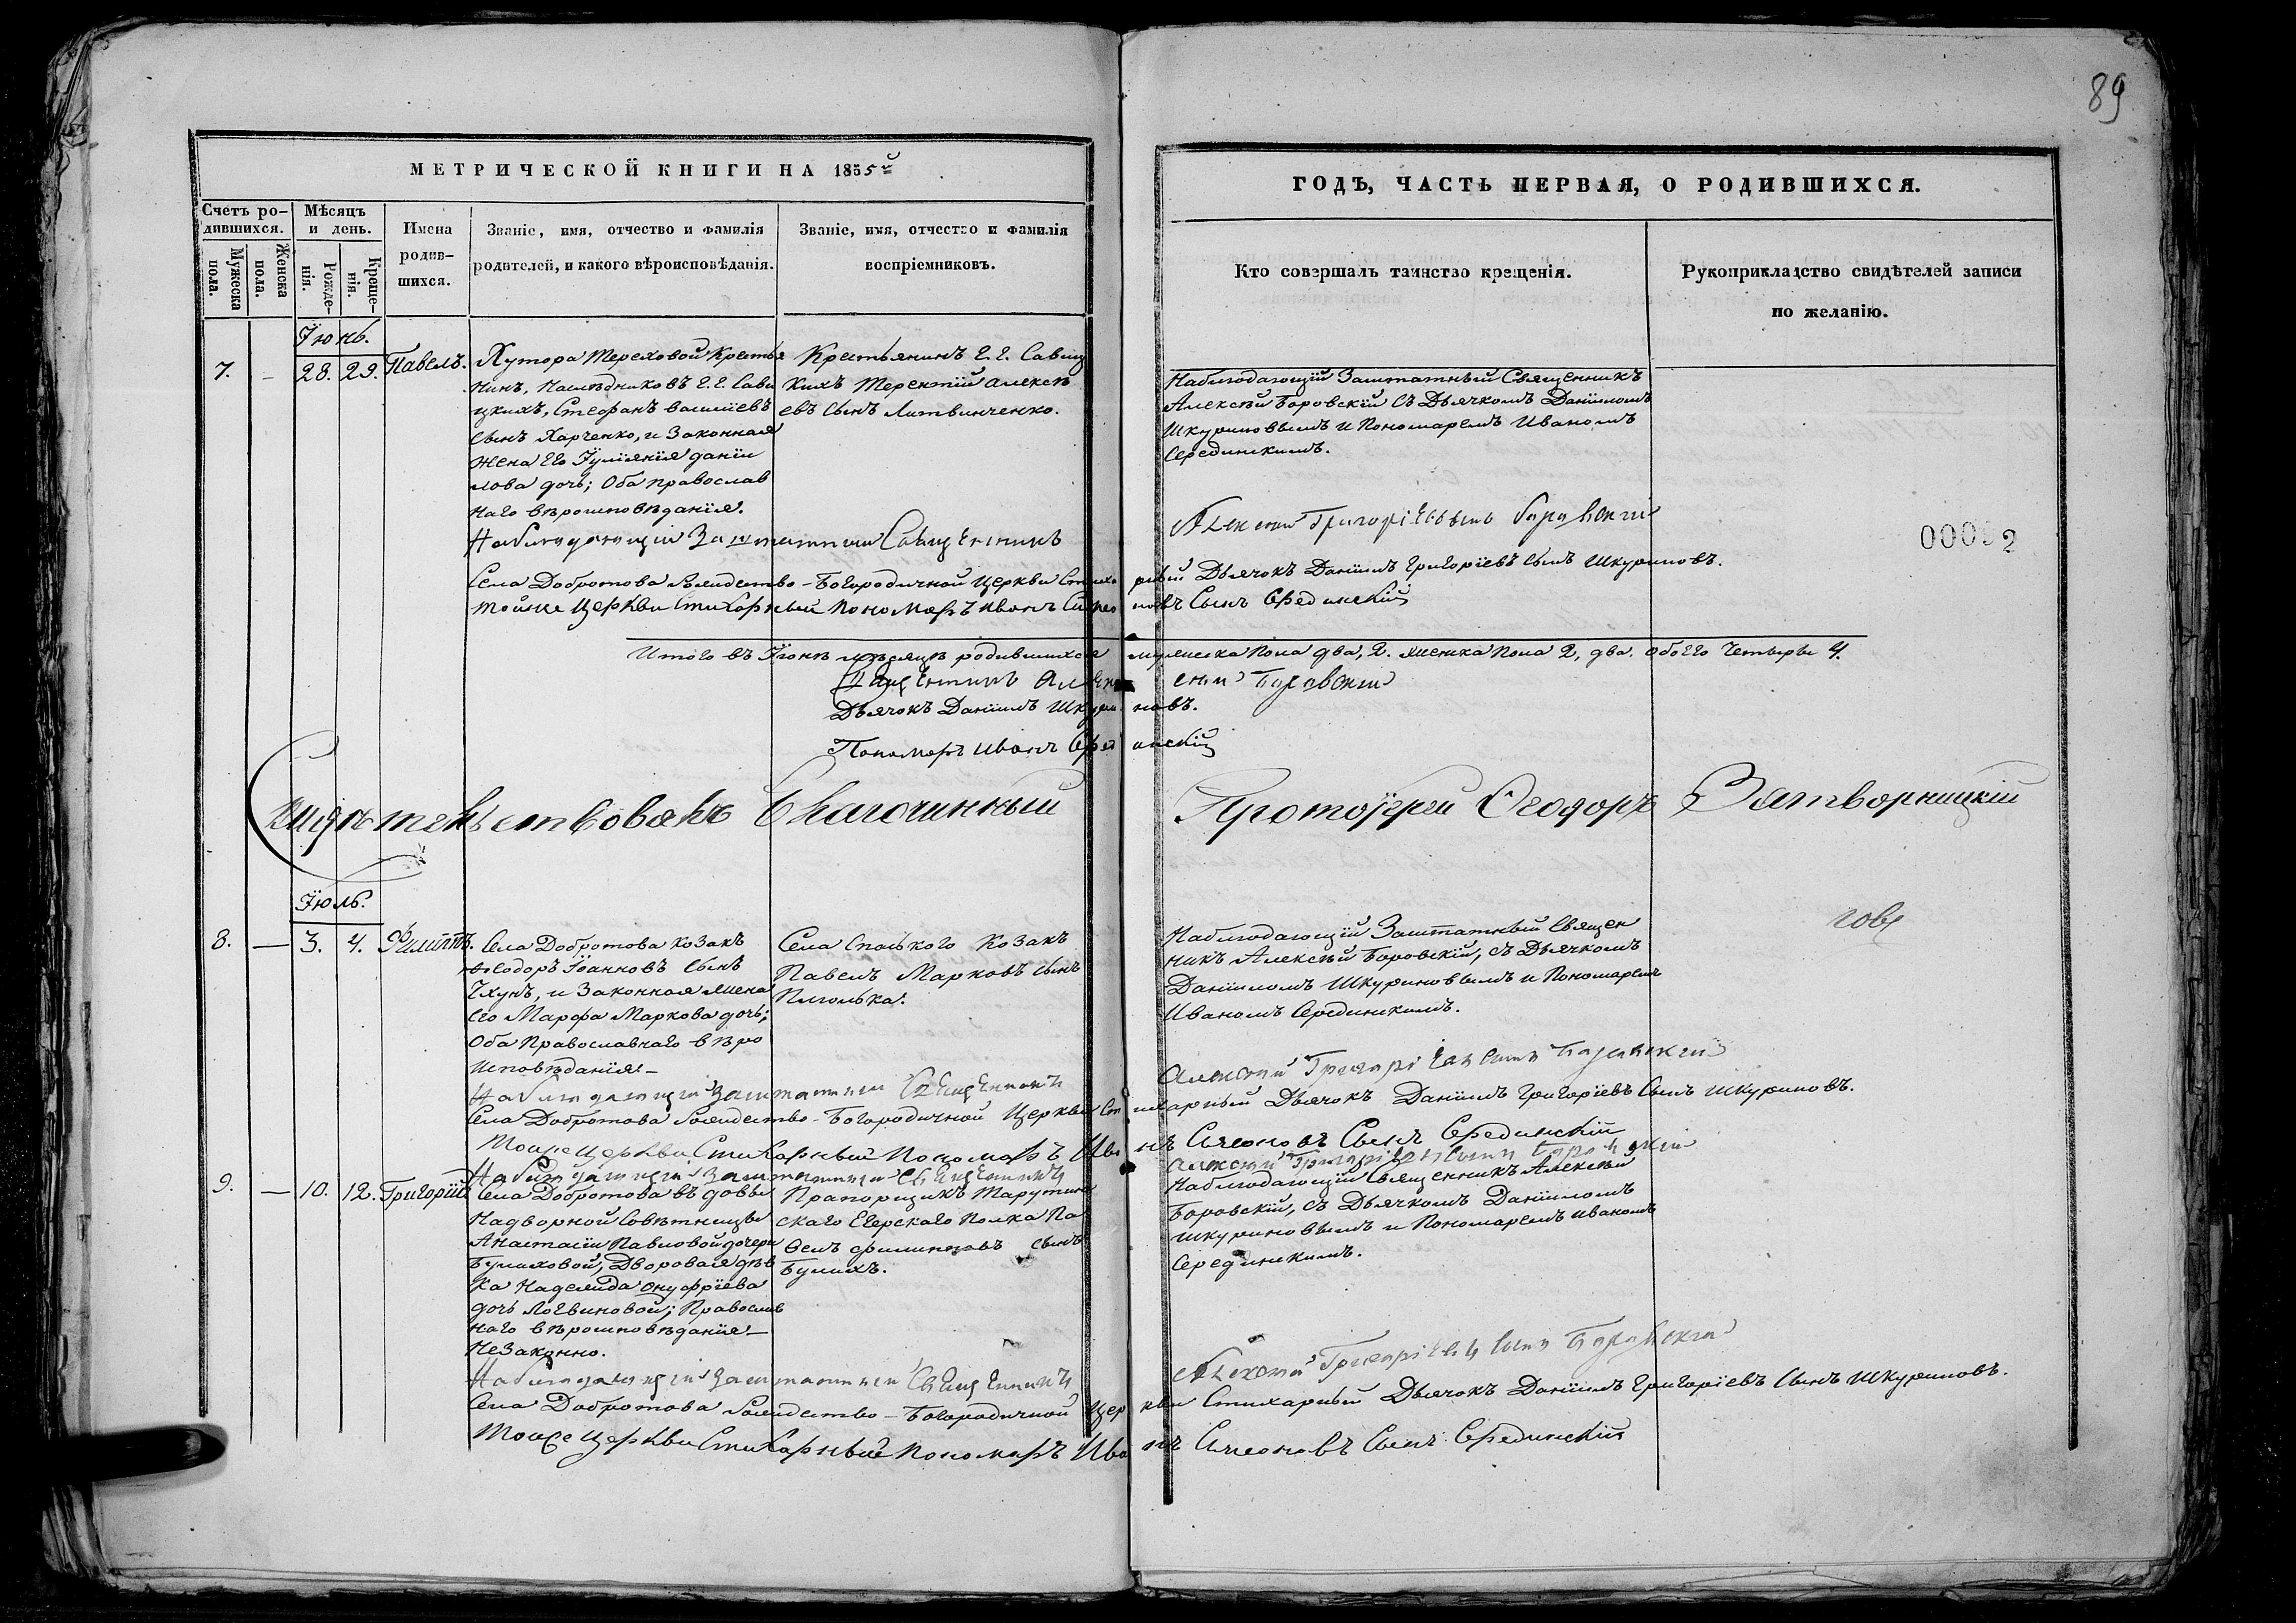 89
МЕТРИЧЕСКОЙ КНИГИ НА 1855й
ГОДЪ, ЧАСТЬ ПЕРВАЯ, О РОДИВШИХСЯ.
Счетъ ро-
дившихся.
Мужеска
пола.
Женска
пола.
Мѣсяцъ
и день.
Рожде-
нія.
Креще-
нія.
Имена
родив-
шихся.
Званіе, имя, отчество и фамилія
родителей, и какого вѣроисповѣданія.
Званіе, имя, отчество и фамилія
воспріемниковъ.
Кто совершалъ таинство крещенія.
Рукоприкладство свидѣтелей записи
по желанію.
Іюнь.
7. — 28. 29. Павелъ.
Хутора Тереховой Крестья
нинъ, Наслѣдниковъ Е. Е. Сави
цкихъ, Стефанъ Василіевъ
сынъ Харченко, и Законная
жена его Іуліянія Даніи
лова дочь; Оба православ
наго вѣроисповѣданія.
Крестьянинъ Е. Е. Савиц
кихъ Терентій Алексѣ
евъ сынъ Литвинченко.
Наблюдающій Заштатный Священникъ
Алексѣй Боровскій съ Дьячкомъ Даніиломъ
Шкуриновымъ и Пономаремъ Иваномъ
Серединскимъ.
Наблюдающій Заштатный Священникъ Алексей Григоріевъ сынъ Боровский
Села Добротова Рождество-Богородичной Церкви Стихарный Дьячокъ Даніилъ Григоріевъ сынъ Шкуриновъ.
Тойже Церкви Стихарный Пономаръ Иванъ Симеоновъ Сынъ Срединский
Итого въ Іюнѣ мѣсяцѣ родившихся мужеска пола два, 2. женска пола 2, два. обоего четыре 4.
Священникъ Алексей Боровский
Дьячокъ Даніилъ Шкуриновъ.
Пономаръ Иванъ Срединскій
Свидѣтельствовалъ Благочинный Протоіерей Ѳеодоръ Затворницкій
Іюль.
8. — 3. 4. Филиппъ.
Села Добротова козакъ
Ѳеодоръ Іоанновъ сынъ
Чхунъ, и Законная жена
его Марфа Маркова дочь;
Оба Православнаго вѣро
исповѣданія.—
Села Спаського Козакъ
Павелъ Марковъ сынъ
Наблюдающій Заштатный Священ
никъ Алексѣй Боровскій, съ Дьячкомъ
Даніиломъ Шкуриновымъ и Пономаремъ
Иваномъ Серединскимъ.
Наблюдающий Заштатный Священникъ Алексей Григоріевъ сынъ Боровский
Села Добротова Рождество-Богородичной Церкви Стихарный Дьячокъ Даніилъ Григоріевъ Сынъ Шкуриновъ.
Тоиже Церкви Стихарный Пономаръ Иванъ Симеоновъ Сынъ Срединский
Наблюдающий Заштатный Священникъ Алексей Григоріевъ сынъ Боровский
9. — 10. 12. Григорій
Села Добротова вдовы
Надворной Совѣтницы
Анастасіи Павловой дочери
Булиховой, Дворовая дѣв
ка Надежда Онуфріева
дочь Логвиновой; Православ
наго вѣроисповѣданія—
Незаконно.
Прапорщикъ Тарутин
скаго Егерскаго Полка Па
велъ Филиповъ сынъ
Булихъ.
Наблюдающій Священникъ Алексѣй
Боровскій, съ Дьячкомъ Даніиломъ
Шкуриновымъ и Пономаремъ Иваномъ
Серединскимъ.
Наблюдающий Заштатный Священникъ Алексей Григоріевъ сынъ Боровский
Села Добротова Рождество-Богородичной Церкви Стихарный Дьячокъ Даніилъ Григоріевъ Сынъ Шкуриновъ.
Тоиже Церкви Стихарный Пономаръ Иванъ Симеоновъ Сынъ Срединский